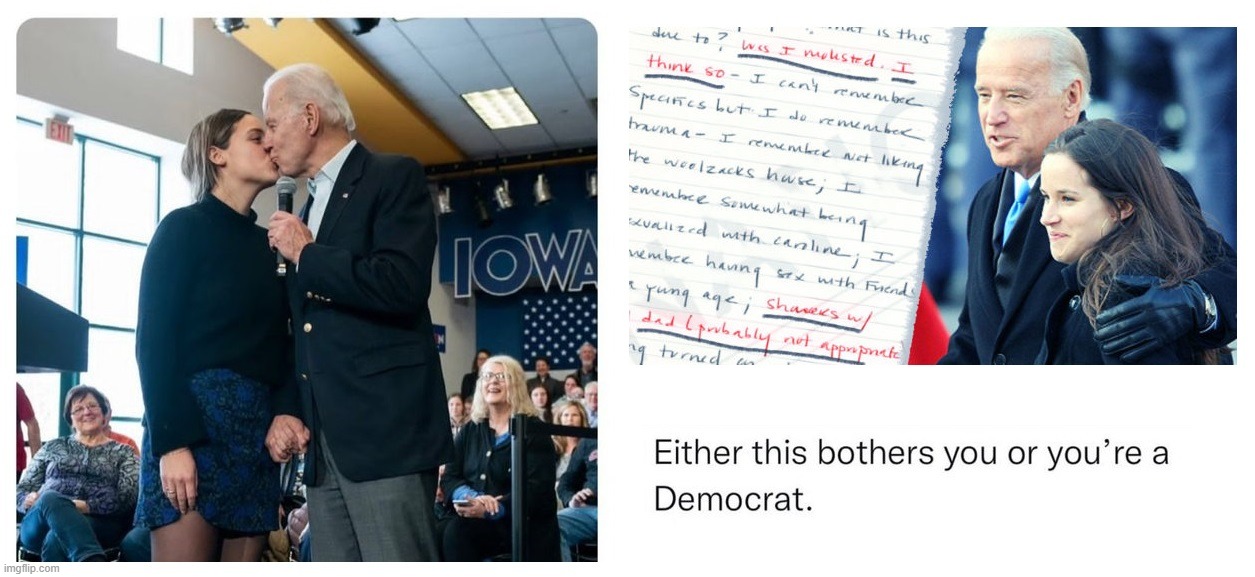 EXIT
IOWA
is this
due to? was I molested. I
think so - I can't remember
Specifics but I do remember
trauma - I remember not liking
the woolzacks house; I
emember somewhat being
exualized with caroline; I
member having sex with Friends
young age; showers w/
dad (probably not appropriate
turned
Either this bothers you or you're a
Democrat.
imgflip.com